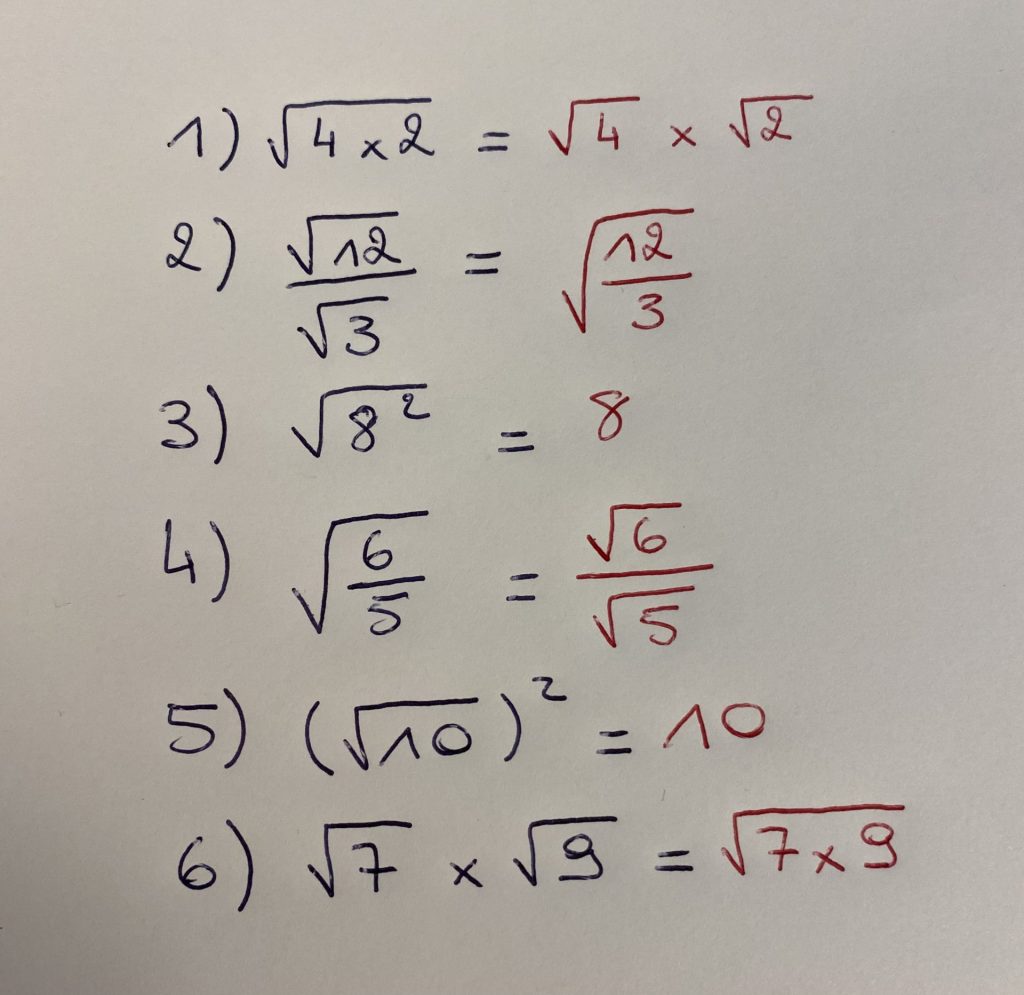 1) √(4 × 2) = √4 × √2
2) √12/√3 = √(12/3)
3) √(8²) = 8
4) √(6/5) = √6/√5
5) (√10)² = 10
6) √7 × √9 = √(7 × 9)